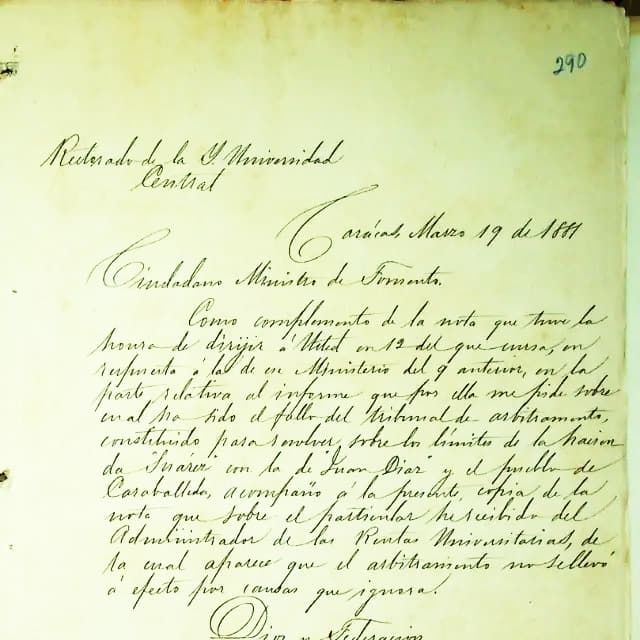 290
Rectorado de la Y. Universidad
Central
Carácas, Marzo 19 de 1881
Ciudadano Ministro de Fomento.
Como complemento de la nota que tuve la
honra de dirijir á Usted en 12 del que cursa, en
respuesta á la de ese Ministerio del 9 anterior, en la
parte relativa al informe que por ella me pide sobre
cual ha sido el fallo del tribunal de arbitramento,
constituido para resolver sobre los límites de la hacien
da "Suárez" con la de "Juan Diaz" y el pueblo de
Caraballeda, acompaño á la presente, copia de la
nota que sobre el particular he recibido del
Administrador de las Rentas Universitarias, de
la cual aparece que el arbitramento no se llevó
á efecto por causas que ignora.
Dios y Federacion